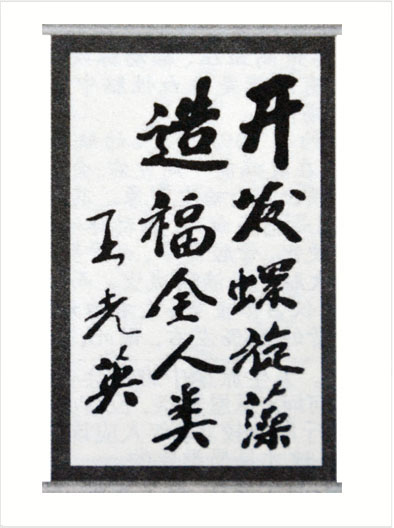 开发螺旋藻
造福全人类
王光英